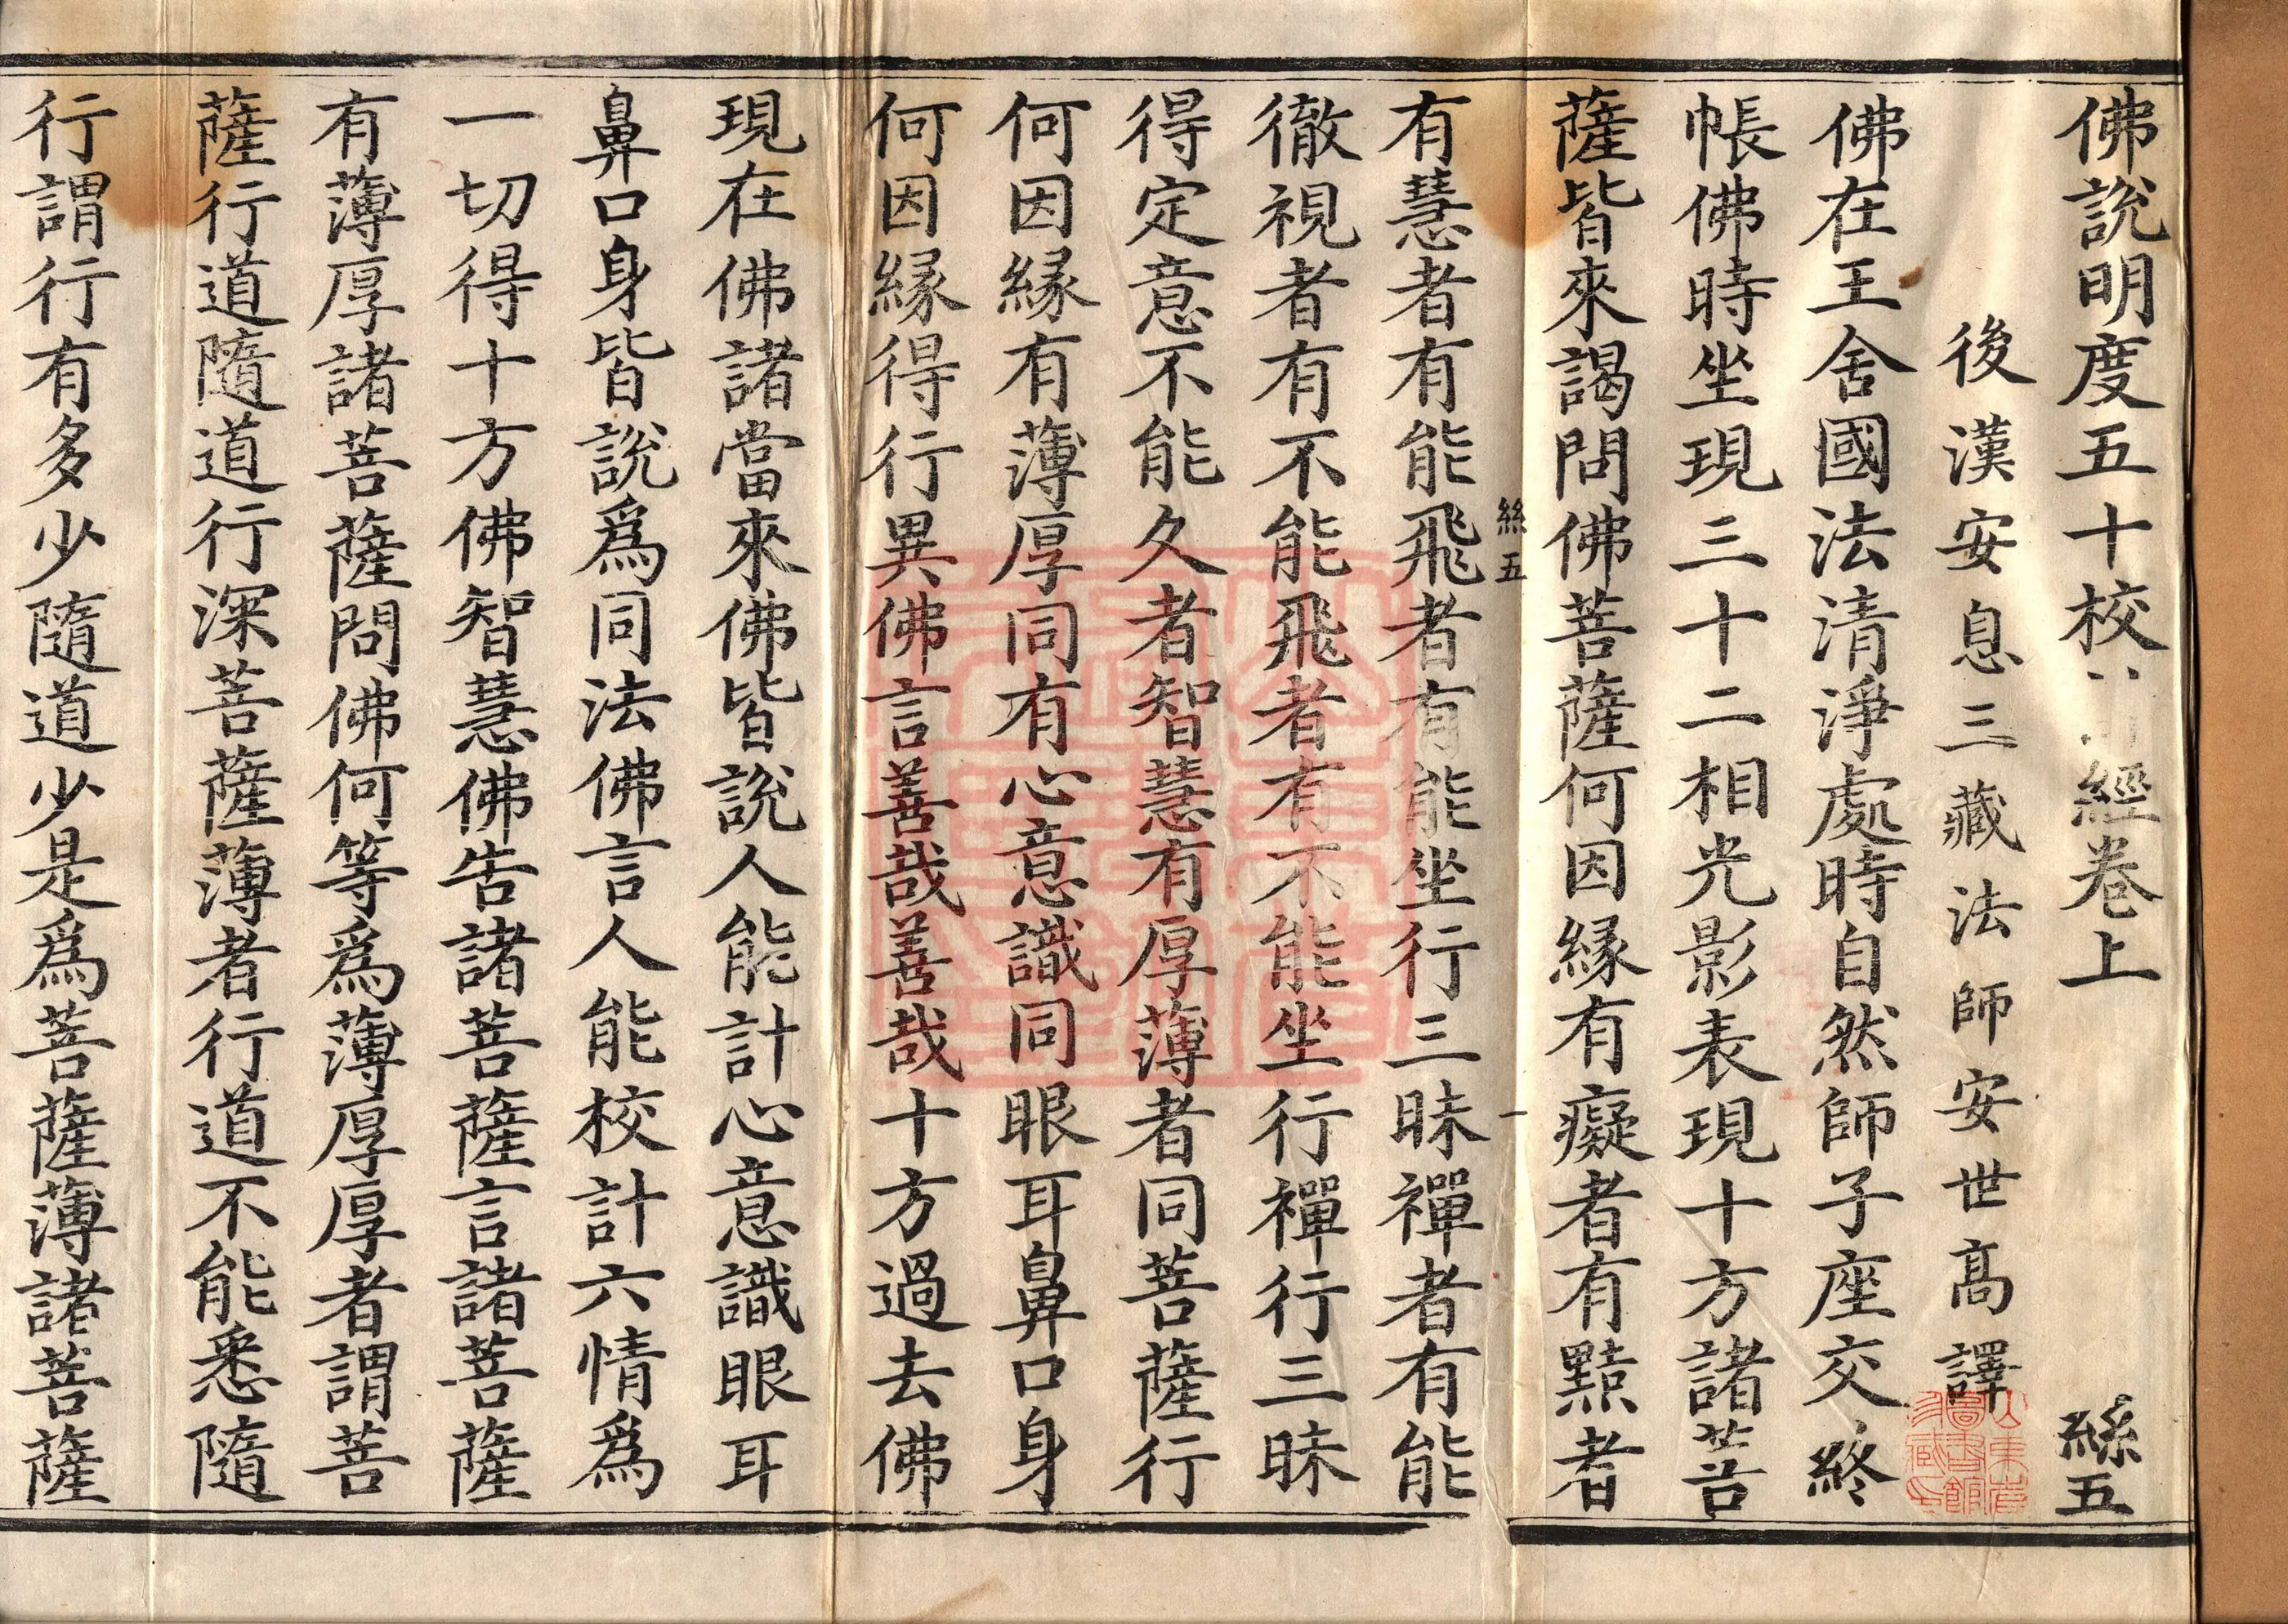 佛說明度五十校經卷上 絲五
後漢安息三藏法師安世高譯
佛在王舍國法清淨處時自然師子座交絡
帳佛時坐現三十二相光影表現十方諸菩
薩皆來謁問佛菩薩何因緣有癡者有黠者
絲五 一
有慧者有能飛者有能坐行三昧禪者有能
徹視者有不能飛者有不能坐行禪行三昧
得定意不能久者智慧有厚薄者同菩薩行
何因緣有薄厚同有心意識同眼耳鼻口身
何因緣得行異佛言善哉善哉十方過去佛
現在佛諸當來佛皆說人能計心意識眼耳
鼻口身皆說爲同法佛言人能校計六情爲
一切得十方佛智慧佛告諸菩薩言諸菩薩
有薄厚諸菩薩問佛何等爲薄厚厚者謂菩
薩行道隨道行深菩薩薄者行道不能悉隨
行謂行有多少隨道少是爲菩薩薄諸菩薩
山東省
圖書館